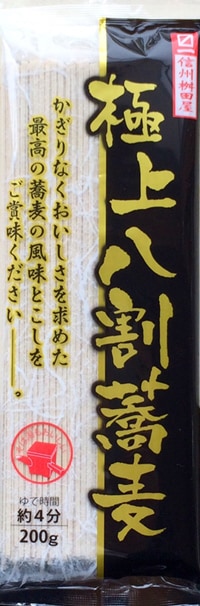 信州桝田屋
極上八割蕎麦
かぎりなくおいしさを求めた
最高の蕎麦の風味とこしを
ご賞味ください――。
ゆで時間
約4分
200g